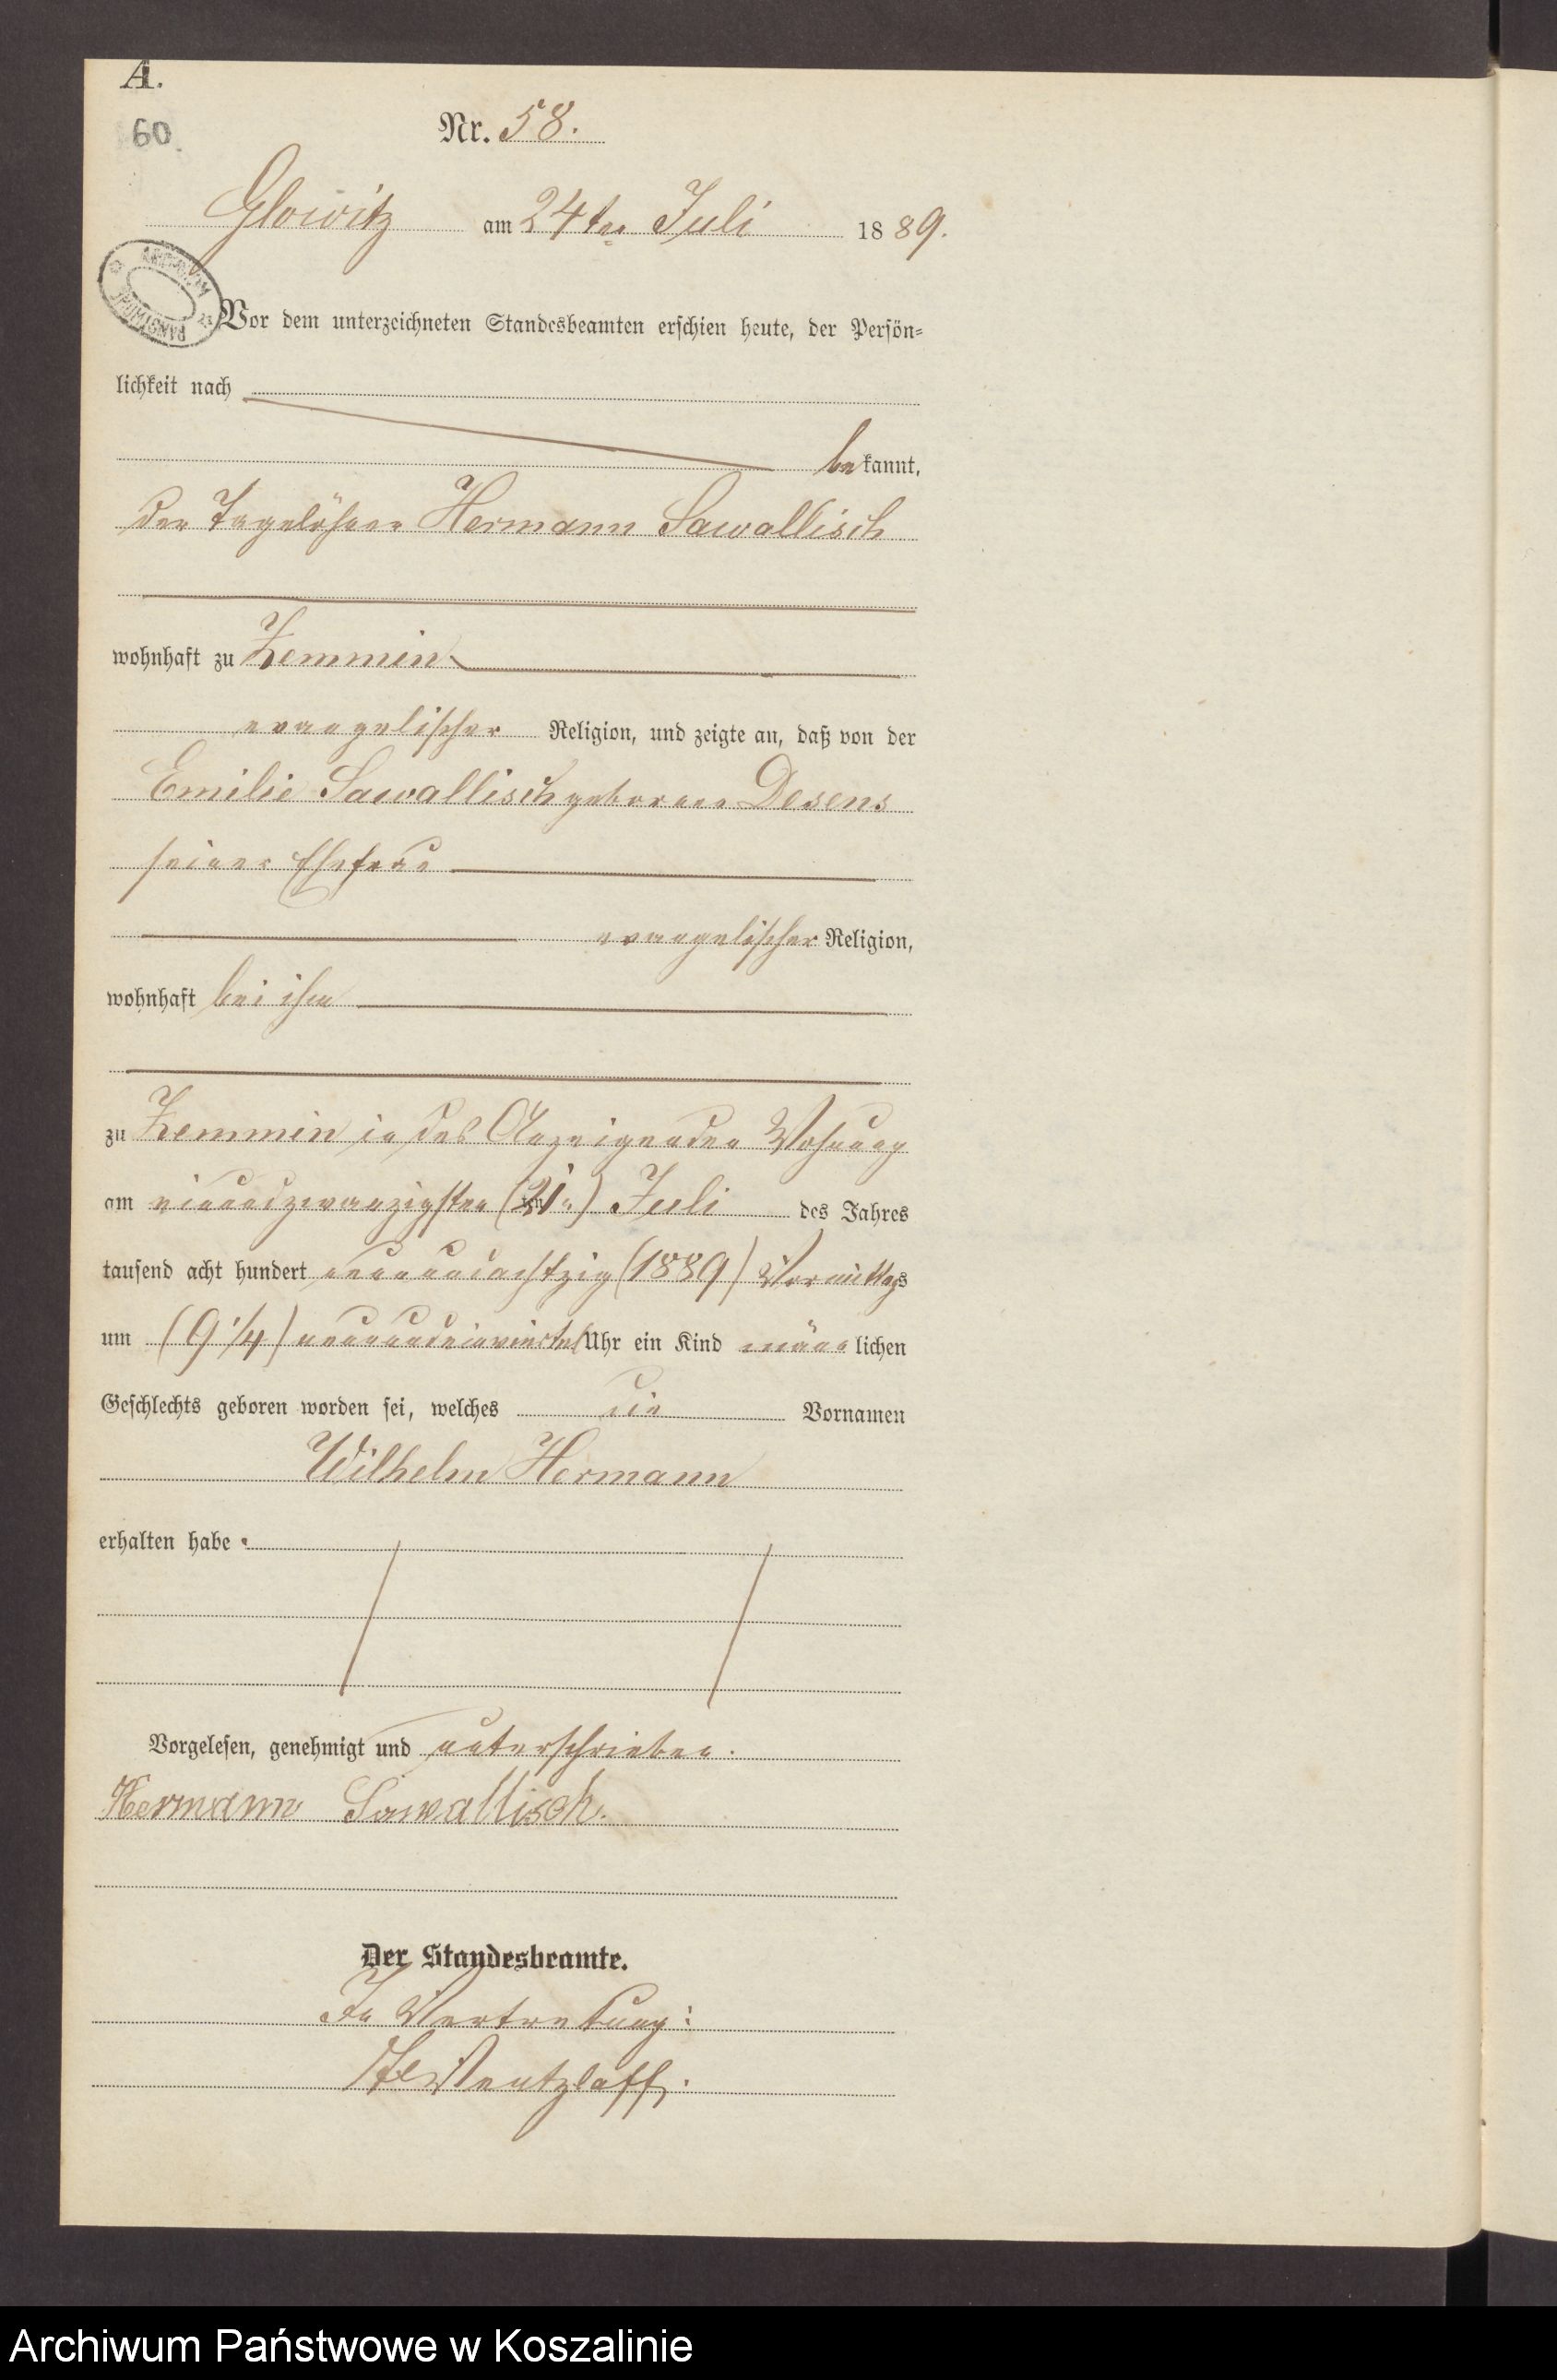 A.
60.
Nr. 58.
Glowitz am 24ten Juli 1889.
ARCHIWUM PAŃSTWOWE
Vor dem unterzeichneten Standesbeamten erschien heute, der Persön-
lichkeit nach
bekannt,
der Tagelöhner Hermann Sawallisch
wohnhaft zu Zemmin
evangelischer Religion, und zeigte an, daß von der
Emilie Sawallisch geborenen Desens
seiner Ehefrau
evangelischer Religion,
wohnhaft bei ihm
zu Zemmin in des Anzeigenden Wohnung
am einundzwanzigsten (21ten) Juli des Jahres
tausend acht hundert neunundachtzig (1889) Vormittags
um (9 1/4) neunundeinviertel Uhr ein Kind männlichen
Geschlechts geboren worden sei, welches die Vornamen
Wilhelm Hermann
erhalten habe.
Vorgelesen, genehmigt und unterschrieben.
Hermann Sawallisch.
Der Standesbeamte.
In Vertretung:
Wentzlaff.
Archiwum Państwowe w Koszalinie